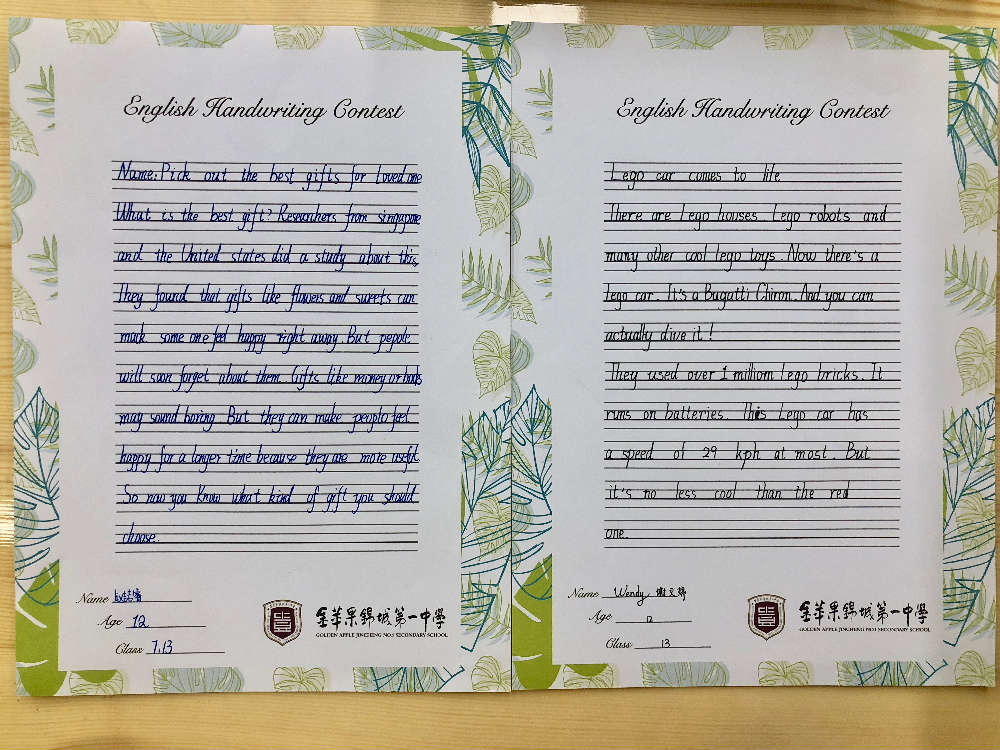 English Handwriting Contest
Name: Pick out the best gifts for loved one
What is the best gift? Researchers from singapore
and the United states did a study about this.
They found that gifts like flowers and sweets can
mack some one feel happy right away. But pepole
will soon forget about them. Gifts like money or
may sound boring. But they can make people feel
happy for a longer time because they are more useful.
So now you know what kind of gift you should
choose.
Name
Age 12
Class 7.13
金苹果錦城第一中學
GOLDEN APPLE JINCHENG NO.1 SECONDARY SCHOOL
English Handwriting Contest
Lego car comes to life
There are Lego houses. Lego robots and
many other cool lego toys. Now there's a
lego car. It's a Bugatti Chiron. And you can
actually dive it!
They used over 1 milliom lego bricks. It
runs on batteries. This Lego car has
a speed of 29 kph at most. But
it's no less cool than the red
one.
Name Wendy
Age 12
Class 13
金苹果錦城第一中學
GOLDEN APPLE JINCHENG NO.1 SECONDARY SCHOOL